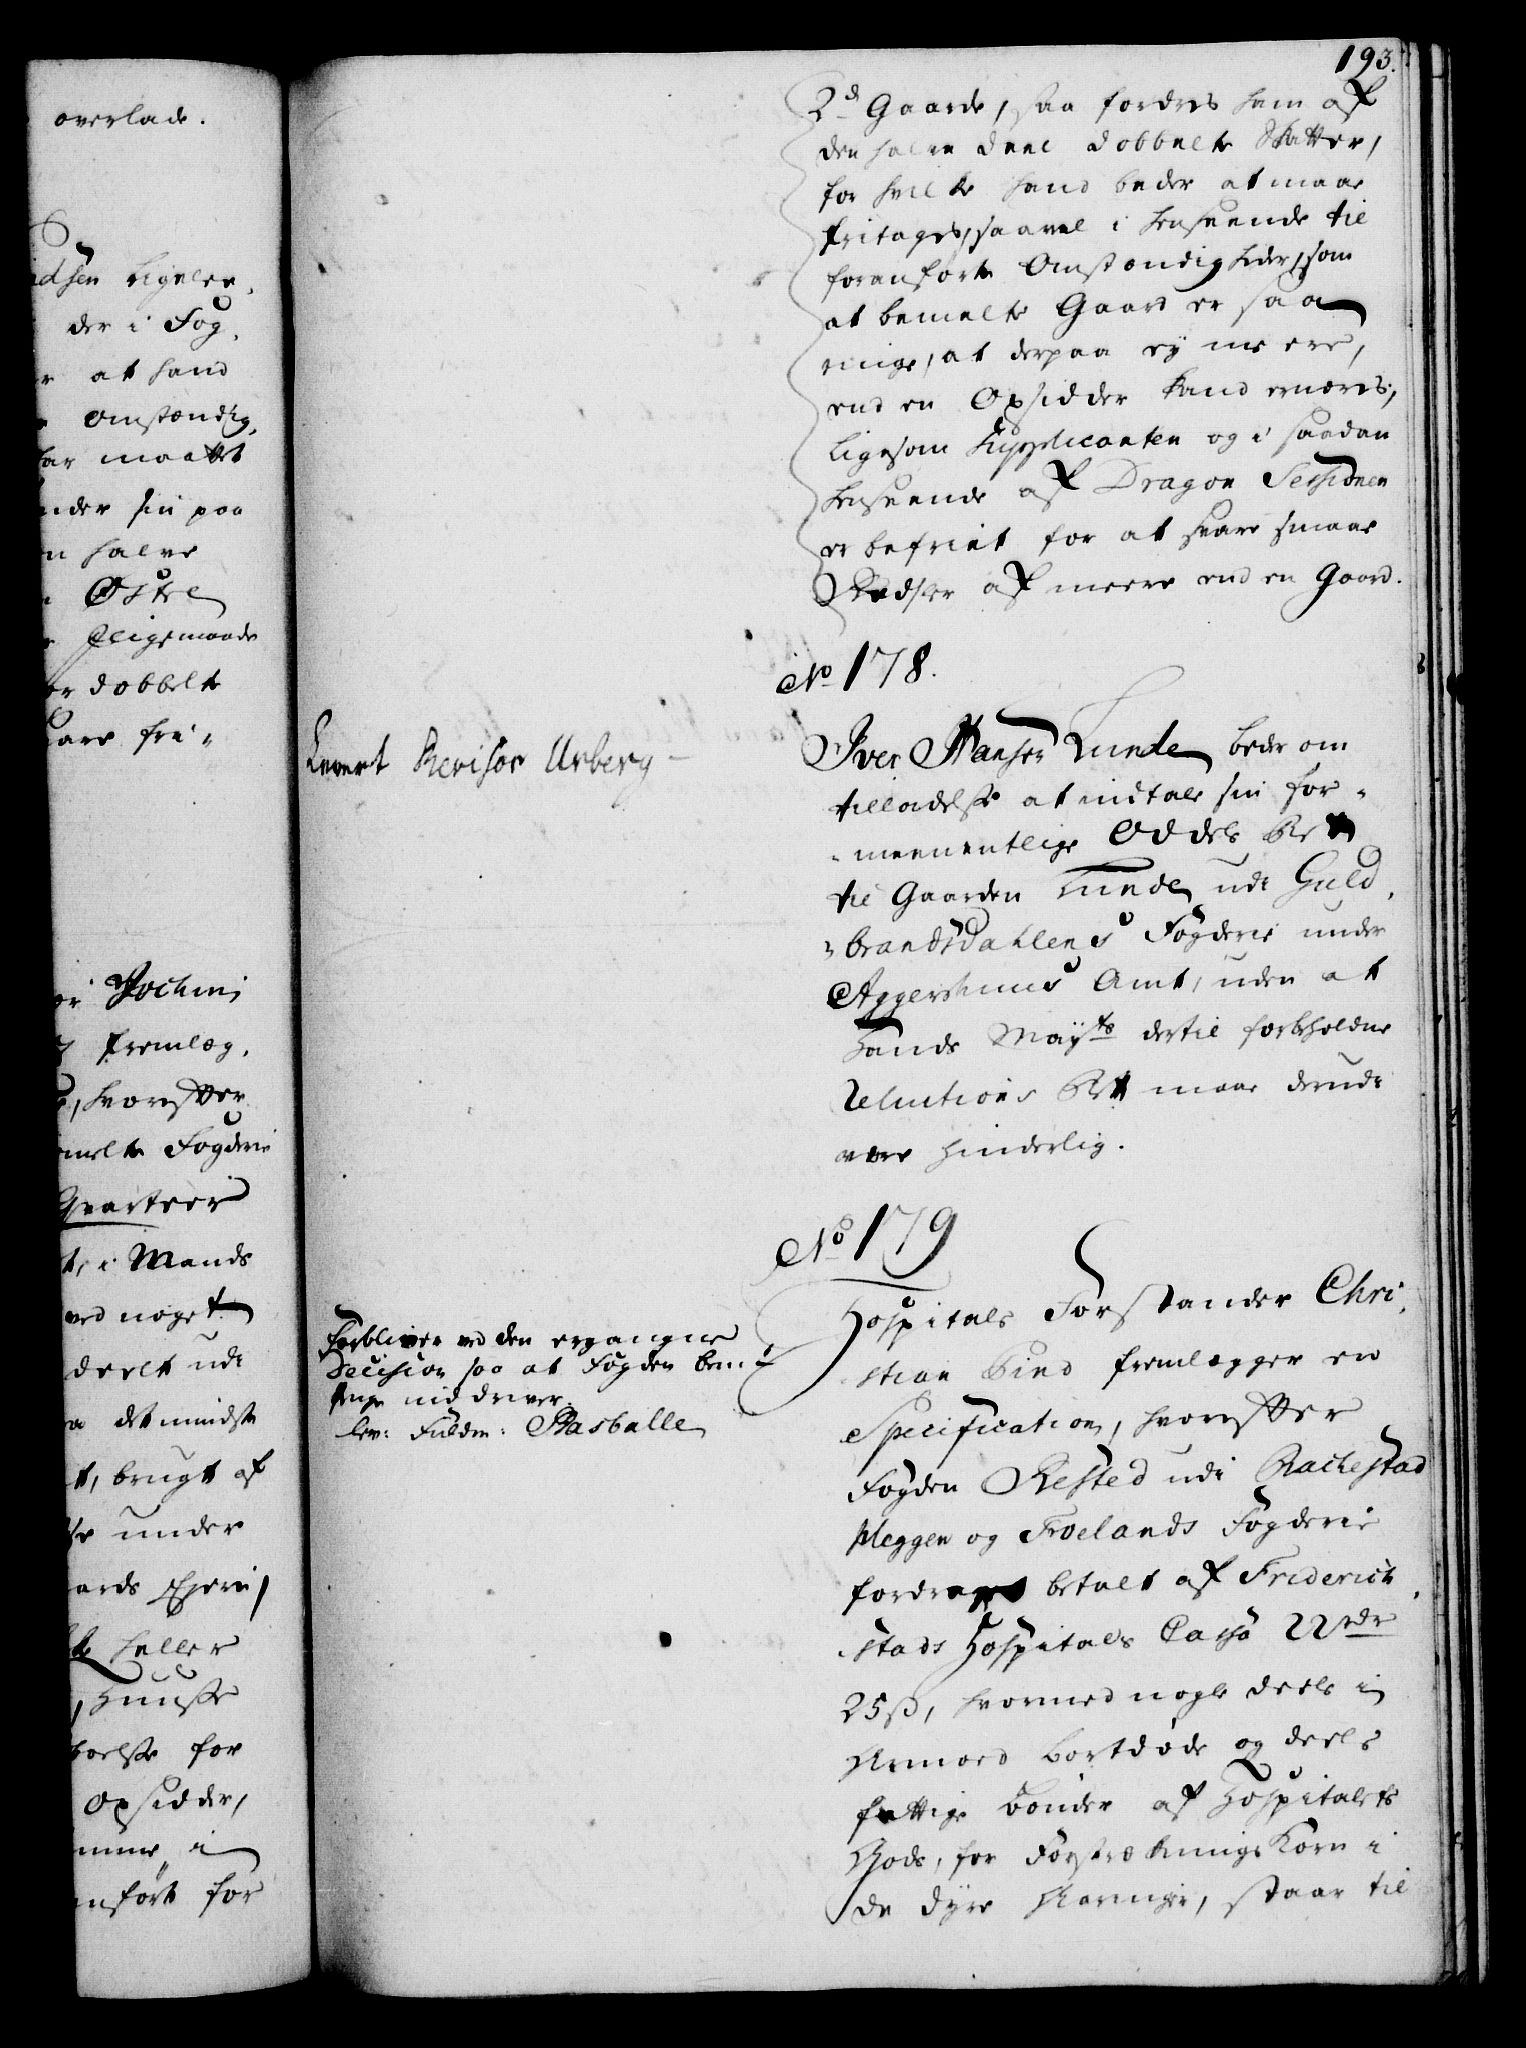 overlade.
dsen ligeleer,
der i Fog,
at hand
omstændig,
har maattet
under sin paa
halve
Østre
ligemaade
dobbelt
svare fri-
Jochim
fremlæg,
hvorefter
melte Fogderie
Qvarteer
i Mands
ved noget
deelt udi
det mindste
brugt af
under
heller
Huuse
for
Opsidder,
i
anført for
193.
2de Gaarde, saa fordres ham af
den halve Deel dobbelte Skatter,
for hvilke hand beder at maae
fritages, saavel i henseende til
foranførte Omstændigheder, som
at bemelte Gaard er saa
ringe, at derpaa ey meere,
end en Opsidder kand ernæres,
ligesom Supplicanten og i saadan
henseende af Dragon Sessionen
er befriet for at svare smaae
Redsler af meere end en Gaard.
No 178.
Levert Revisor Urberg-
Iver Hansen Lunde beder om
tilladelse at indtale sin for-
-meenentlige Oddels Rett
til Gaarden Lunde udi Guld,
-brandsdahlens Fogderie under
Aggershuus Amt, uden at
Hands Mayts dertil forbeholdne
Reluitions Rett maae derudi
være hinderlig.
No 179
Forbliver ved den ergangne
Decision saa at Fogden bem:te
penge inddriver
lev: Fuldm: Rasballe
Hospitals Forstander Chri,
-stian Bind fremlægger en
Specification, hvorefter
Fogden Rested udi Rachestad
Heggen og Froelands Fogderie
fordrer betalt af Friderich,
-stads Hospitals Cassa 22 rdr
25 s, hvormed nogle deels i
Armoed bortdøde og deels
fattige Bønder af Hospitalets
Gods, for Forstræknings Korn i
de dyre Aaringer, staar til